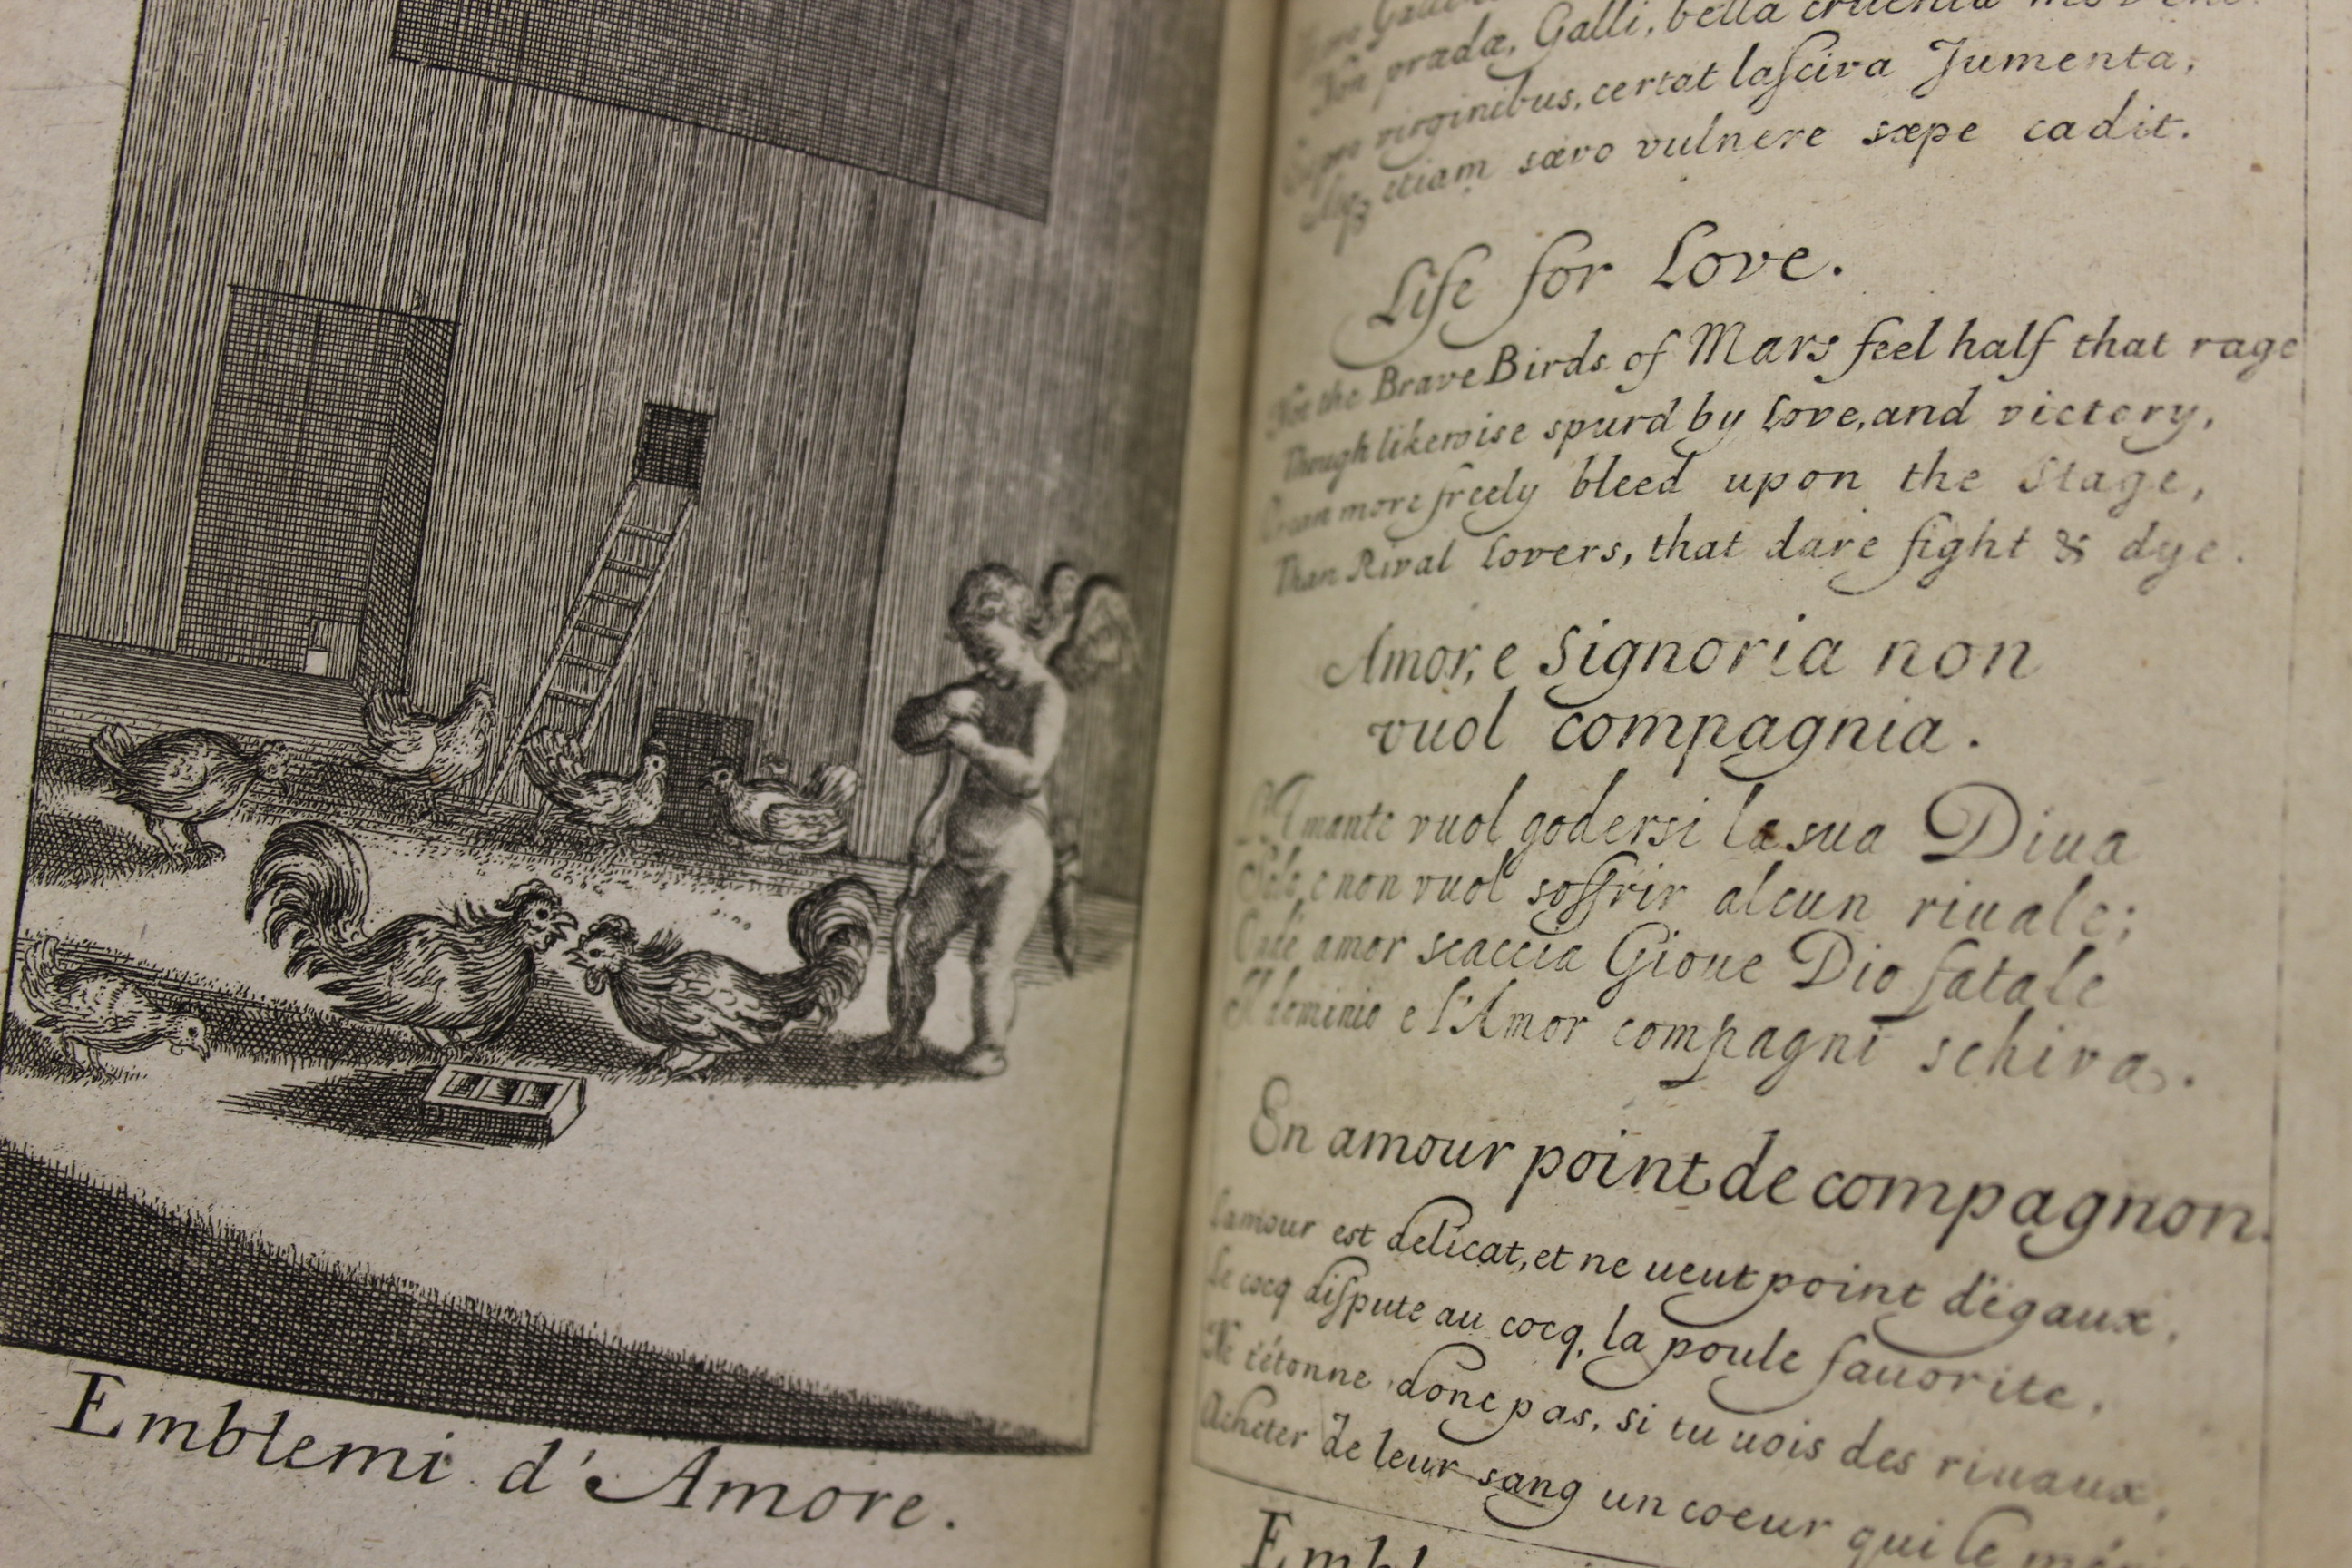 Emblemi d'Amore.
præda, Galli, bella cruenta
pro virginibus, certat lasciva Jumenta,
Atqꝫ etiam sævo vulnere sæpe cadit.
Life for Love.
Not the Brave Birds of Mars feel half that rage
Though likewise spurd by Love, and victory,
Or can more freely bleed upon the Stage,
Than Rival Lovers, that dare fight & dye.
Amor, e Signoria non
vuol compagnia.
L'Amante vuol godersi la sua Diua
Solo, e non vuol soffrir alcun riuale;
amor scaccia Gioue Dio fatale
Il dominio e l'Amor compagni schiva.
En amour point de compagnon.
L'amour est delicat, et ne ueut point d'égaux,
Le cocq dispute au cocq, la poule fauorite,
Ne t'étonne donc pas, si tu uois des riuaux,
Acheter de leur sang un coeur qui le